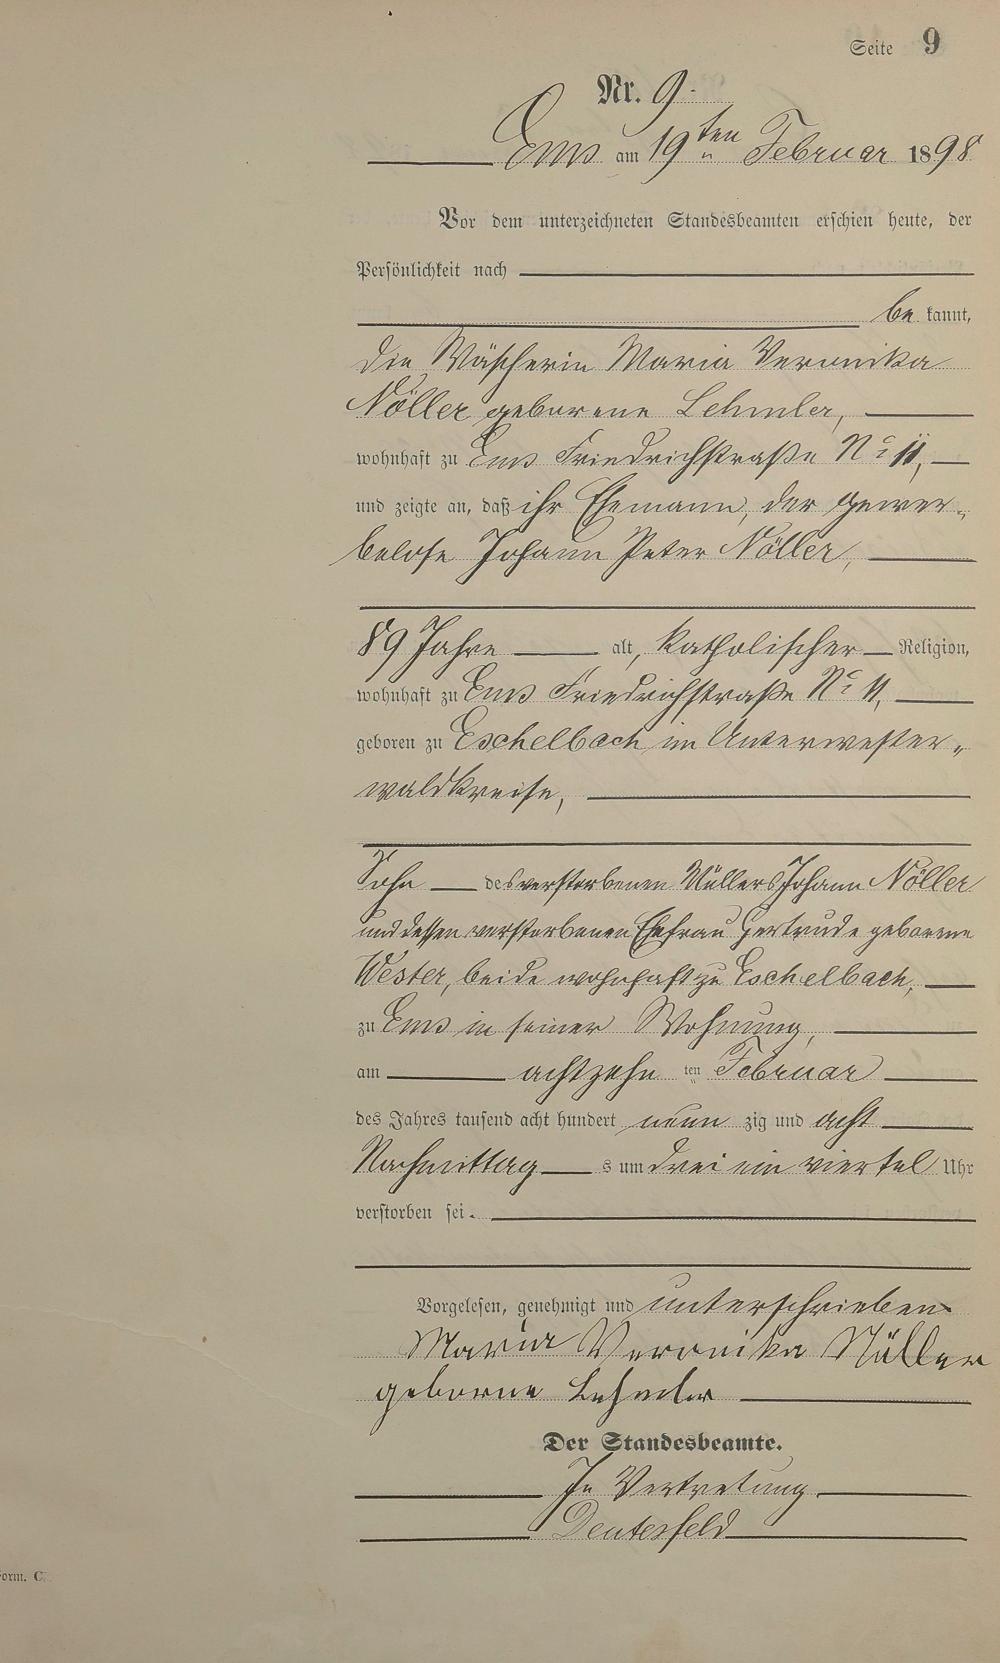 Seite 9
Nr. 9.
Ems am 19ten Februar 1898
Vor dem unterzeichneten Standesbeamten erschien heute, der
Persönlichkeit nach
be kannt,
die Wäscherin Maria Veronika
Nöller geborene Lehmler,
wohnhaft zu Ems Friedrichstraße No 11,
und zeigte an, daß ihr Ehemann, der gewer-
belose Johann Peter Nöller,
89 Jahre alt, katholischer Religion,
wohnhaft zu Ems Friedrichstraße No 11,
geboren zu Eschelbach im Unterwester-
waldkreise,
Sohn des verstorbenen Müllers Johann Nöller
und dessen verstorbenen Ehefrau Gertrude geborene
Wester, beide wohnhaft zu Eschelbach,
zu Ems in seiner Wohnung,
am achtzehn ten Februar
des Jahres tausend acht hundert neun zig und acht
Nachmittag s um drei ein viertel Uhr
verstorben sei.
Vorgelesen, genehmigt und unterschrieben
Maria Veronika Nöller
geborne Lehmler
Der Standesbeamte.
In Vertretung
Deutesfeld
Form. C.